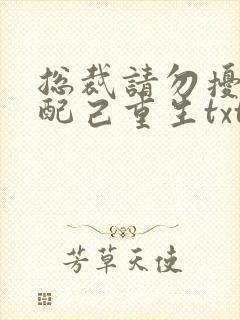 总裁請勿擾
配己重生txt
芳草天使